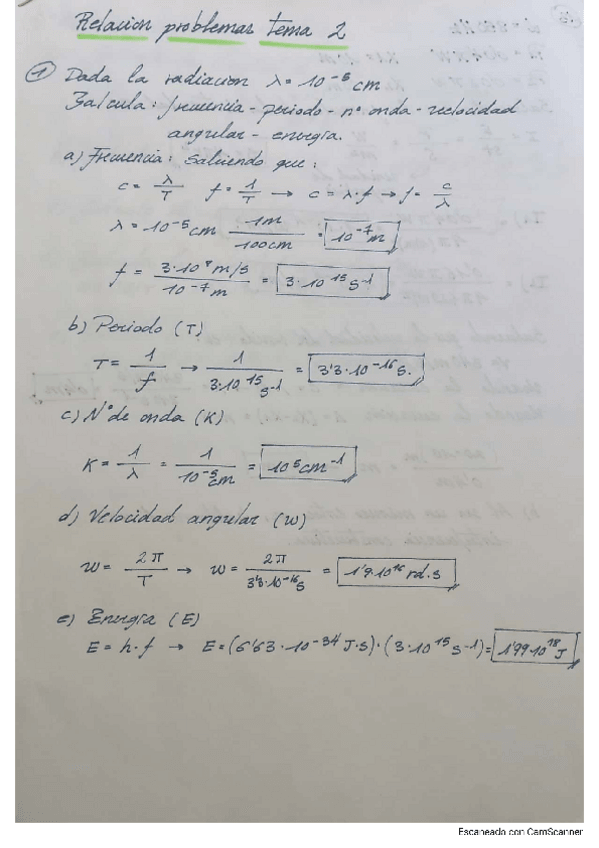 Relacion problemas tema 2
① Dada la radiacion λ = 10⁻⁵ cm
Calcula: frecuencia - periodo - nº onda - velocidad
angular - energía.
a) Frecuencia: Sabiendo que:
c = λ/T f = 1/T → c = λ·f → f = c/λ
λ = 10⁻⁵ cm 1m/100cm = 10⁻⁷ m
f = 3·10⁸ m/s / 10⁻⁷ m = 3·10¹⁵ s⁻¹
b) Periodo (T)
T = 1/f → 1/3·10¹⁵ s⁻¹ = 3'3·10⁻¹⁶ s.
c) Nº de onda (K)
K = 1/λ = 1/10⁻⁵ cm = 10⁵ cm⁻¹
d) Velocidad angular (W)
w = 2π/T → w = 2π/3'3·10⁻¹⁶ s = 1'9·10¹⁶ rd.s
e) Energía (E)
E = h·f → E = (6'63·10⁻³⁴ J·s)·(3·10¹⁵ s⁻¹) = 1'99·10¹⁸ J
Escaneado con CamScanner